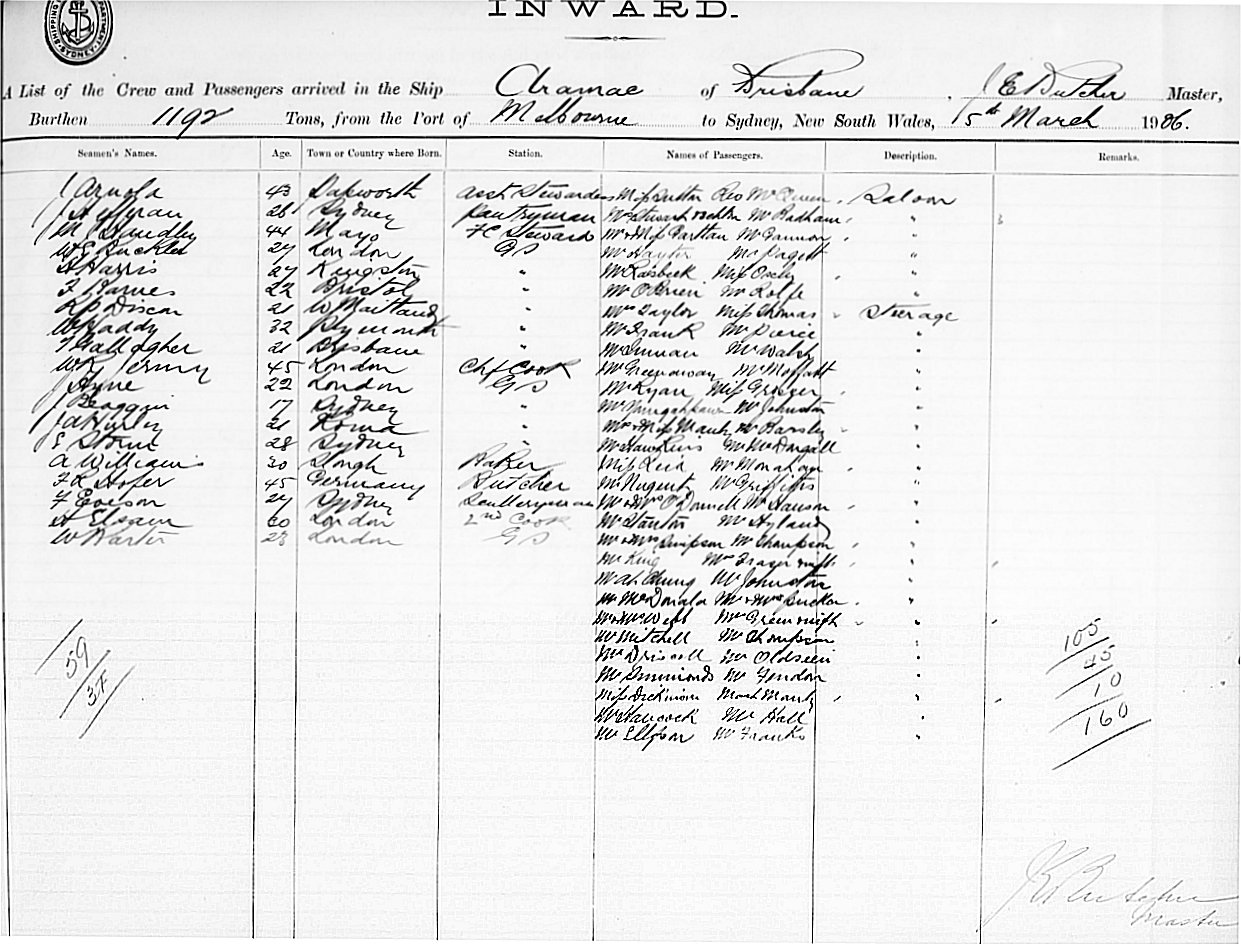 SHIPPING DEPARTMENT SYDNEY
INWARD.
A List of the Crew and Passengers arrived in the Ship Aramac of Brisbane, J E Butcher Master,
Burthen 1192 Tons, from the Port of Melbourne to Sydney, New South Wales, 15th March 1906.
Seamen's Names. Age. Town or Country where Born. Station. Names of Passengers. Description. Remarks.
J Arnold 43 Oakworth Asst Stewardess Miss Sutton Rev Saloon
26 Sydney Pantryman Mr Stewart Mr Badham "
M Handley 44 Mayo FC Steward Mr & Miss "
27 London GS Mr Hayter Mr Pagett "
A Harris 27 Kingston " Mr Miss "
F Barnes 22 Bristol " Mr O'Brien Mr Rolfe "
21 W Maitland " Mrs Taylor Miss Thomas " Steerage
W Haddy 32 Plymouth " Mr Frank Mr Pierce "
T Gallagher 21 Brisbane " Mr Mr Walsh "
45 London Chf Cook Mr Greenaway Mr Moffatt "
J Hyne 22 London GS Mr Ryan Miss "
17 Sydney " Mr Mr Johnston "
J A Hurley 21 Roma " Mrs & Miss Mantz Mr "
E Storm 28 Sydney " Mr Hawkins Mr McDougall "
A Williams 30 Slough Baker Miss Reid Mr Monahan "
F R Hofer 45 Germany Butcher Mr Nugent Mr Griffiths "
F 27 Sydney Sculleryman Mr & Mrs O'Donnell Mr Hanson "
A 20 London 2nd Cook Mr Stanton Mr Hyland "
W 28 London GS Mr & Mrs Simpson Mr Thompson "
Mr King Mrs Fraser "
Mr Ah Chung Mr Johnston "
Mr McDonald Mr & Mrs Tucker "
Mr & Mrs Webb Mrs Greensmith "
Mr Mitchell Mr Thompson "
Mr Driscoll Mr "
Mr Simmonds Mr Fendon "
Miss Dickinson Mast Mantz "
Mr Hancock Mr Hall "
Mr Mr Franks "
59
37
105
45
10
160
J E Butcher
Master